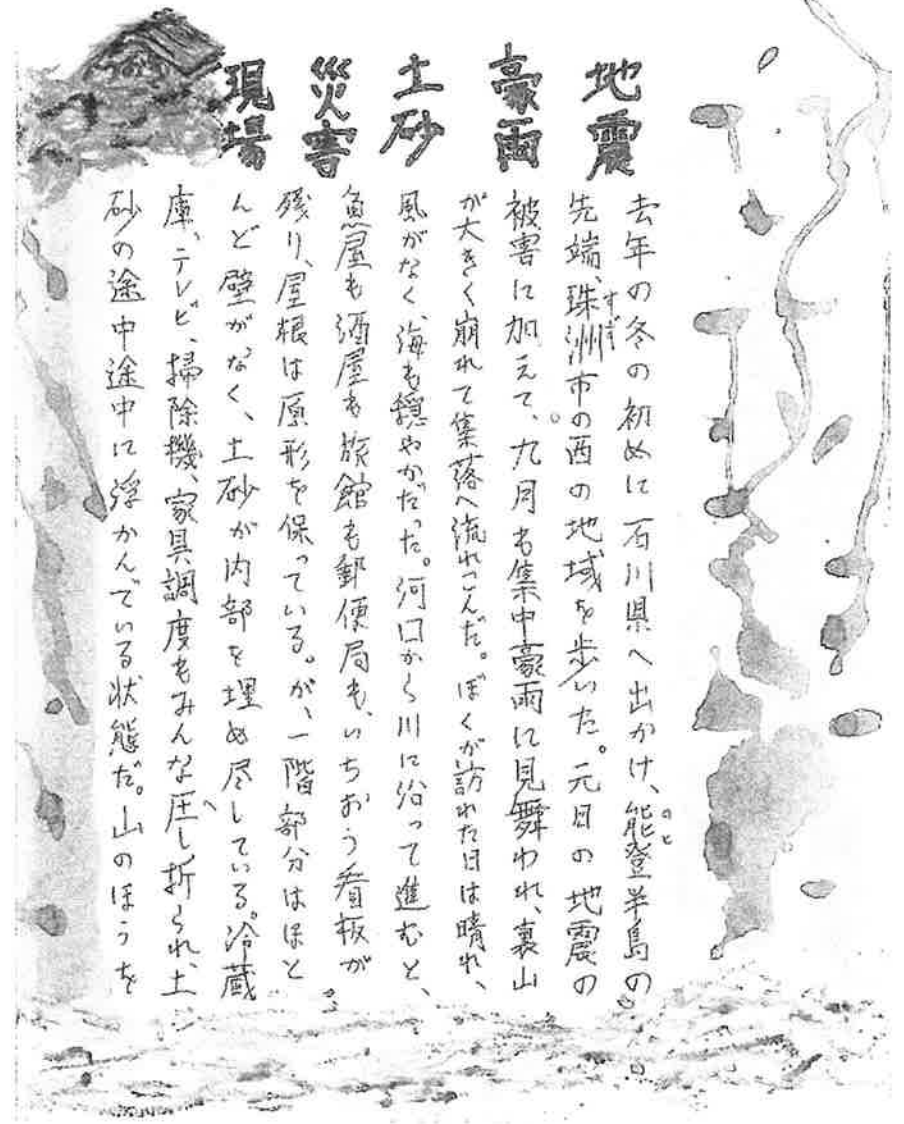 地震
豪雨
土砂
災害
現場
去年の冬の初めに石川県へ出かけ、能登半島の
先端、珠洲市の西の地域を歩いた。元日の地震の
被害に加えて、九月も集中豪雨に見舞われ、裏山
が大きく崩れて集落へ流れこんだ。ぼくが訪れた日は晴れ、
風がなく、海も穏やかだった。河口から川に沿って進むと、
魚屋も酒屋も旅館も郵便局も、いちおう看板が
残り、屋根は原形を保っている。が、一階部分はほと
んど壁がなく、土砂が内部を埋め尽している。冷蔵
庫、テレビ、掃除機、家具調度もみんな圧し折られ、土
砂の途中途中に浮かんでいる状態だ。山のほうを
のと
すず
へ